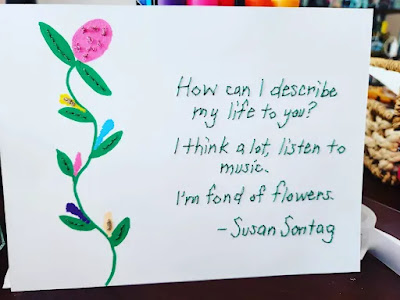 How can I describe
my life to you?
I think a lot, listen to
music.
I'm fond of flowers.
- Susan Sontag